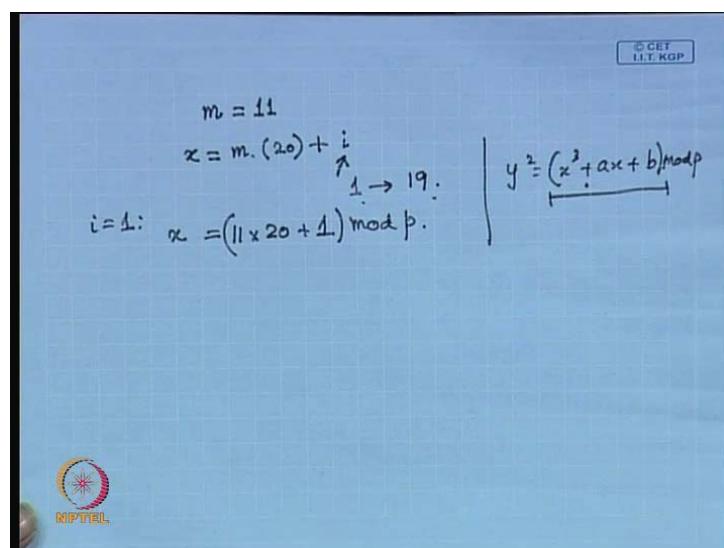 © CET
I.I.T. KGP
m = 11
x = m. (20) + i
↑
1 → 19.
i = 1: x = (11 x 20 + 1) mod p.
y² = (x³ + ax + b) mod p
NPTEL